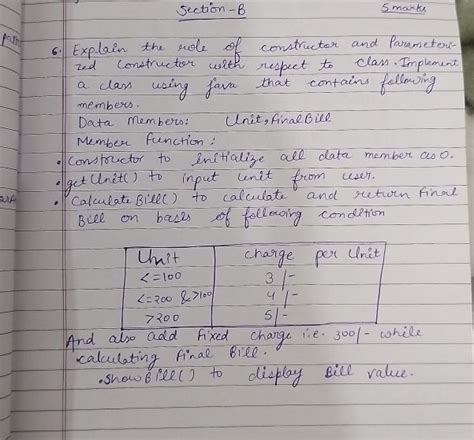 Section-B 5 marks
6. Explain the role of constructor and Parameteri-
zed constructor with respect to class. Implement
a class using java that contains following
members.
Data Members: Unit, FinalBill
Member Function:
• Constructor to initialize all data member as 0.
• getUnit() to input unit from user.
• Calculate Bill() to calculate and return Final
Bill on basis of following condition
Unit charge per Unit
<=100 3/-
<=200 & >100 4/-
>200 5/-
And also add fixed charge i.e. 300/- while
calculating Final Bill.
• Show Bill() to display Bill value.